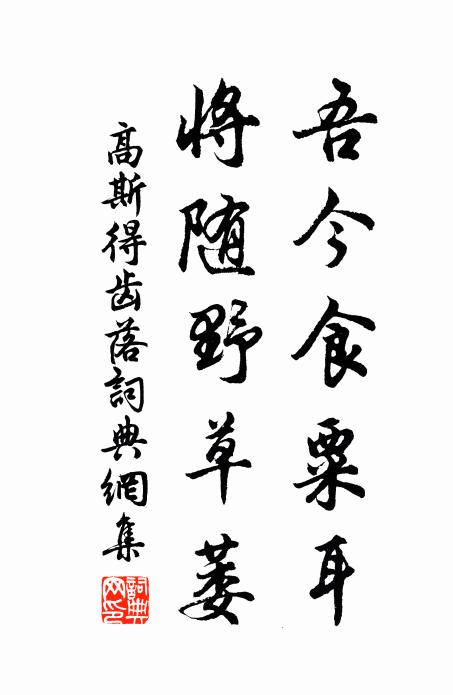 吾今食粟耳
将随野草萎
高斯得齿落詞典網集
詞典网印